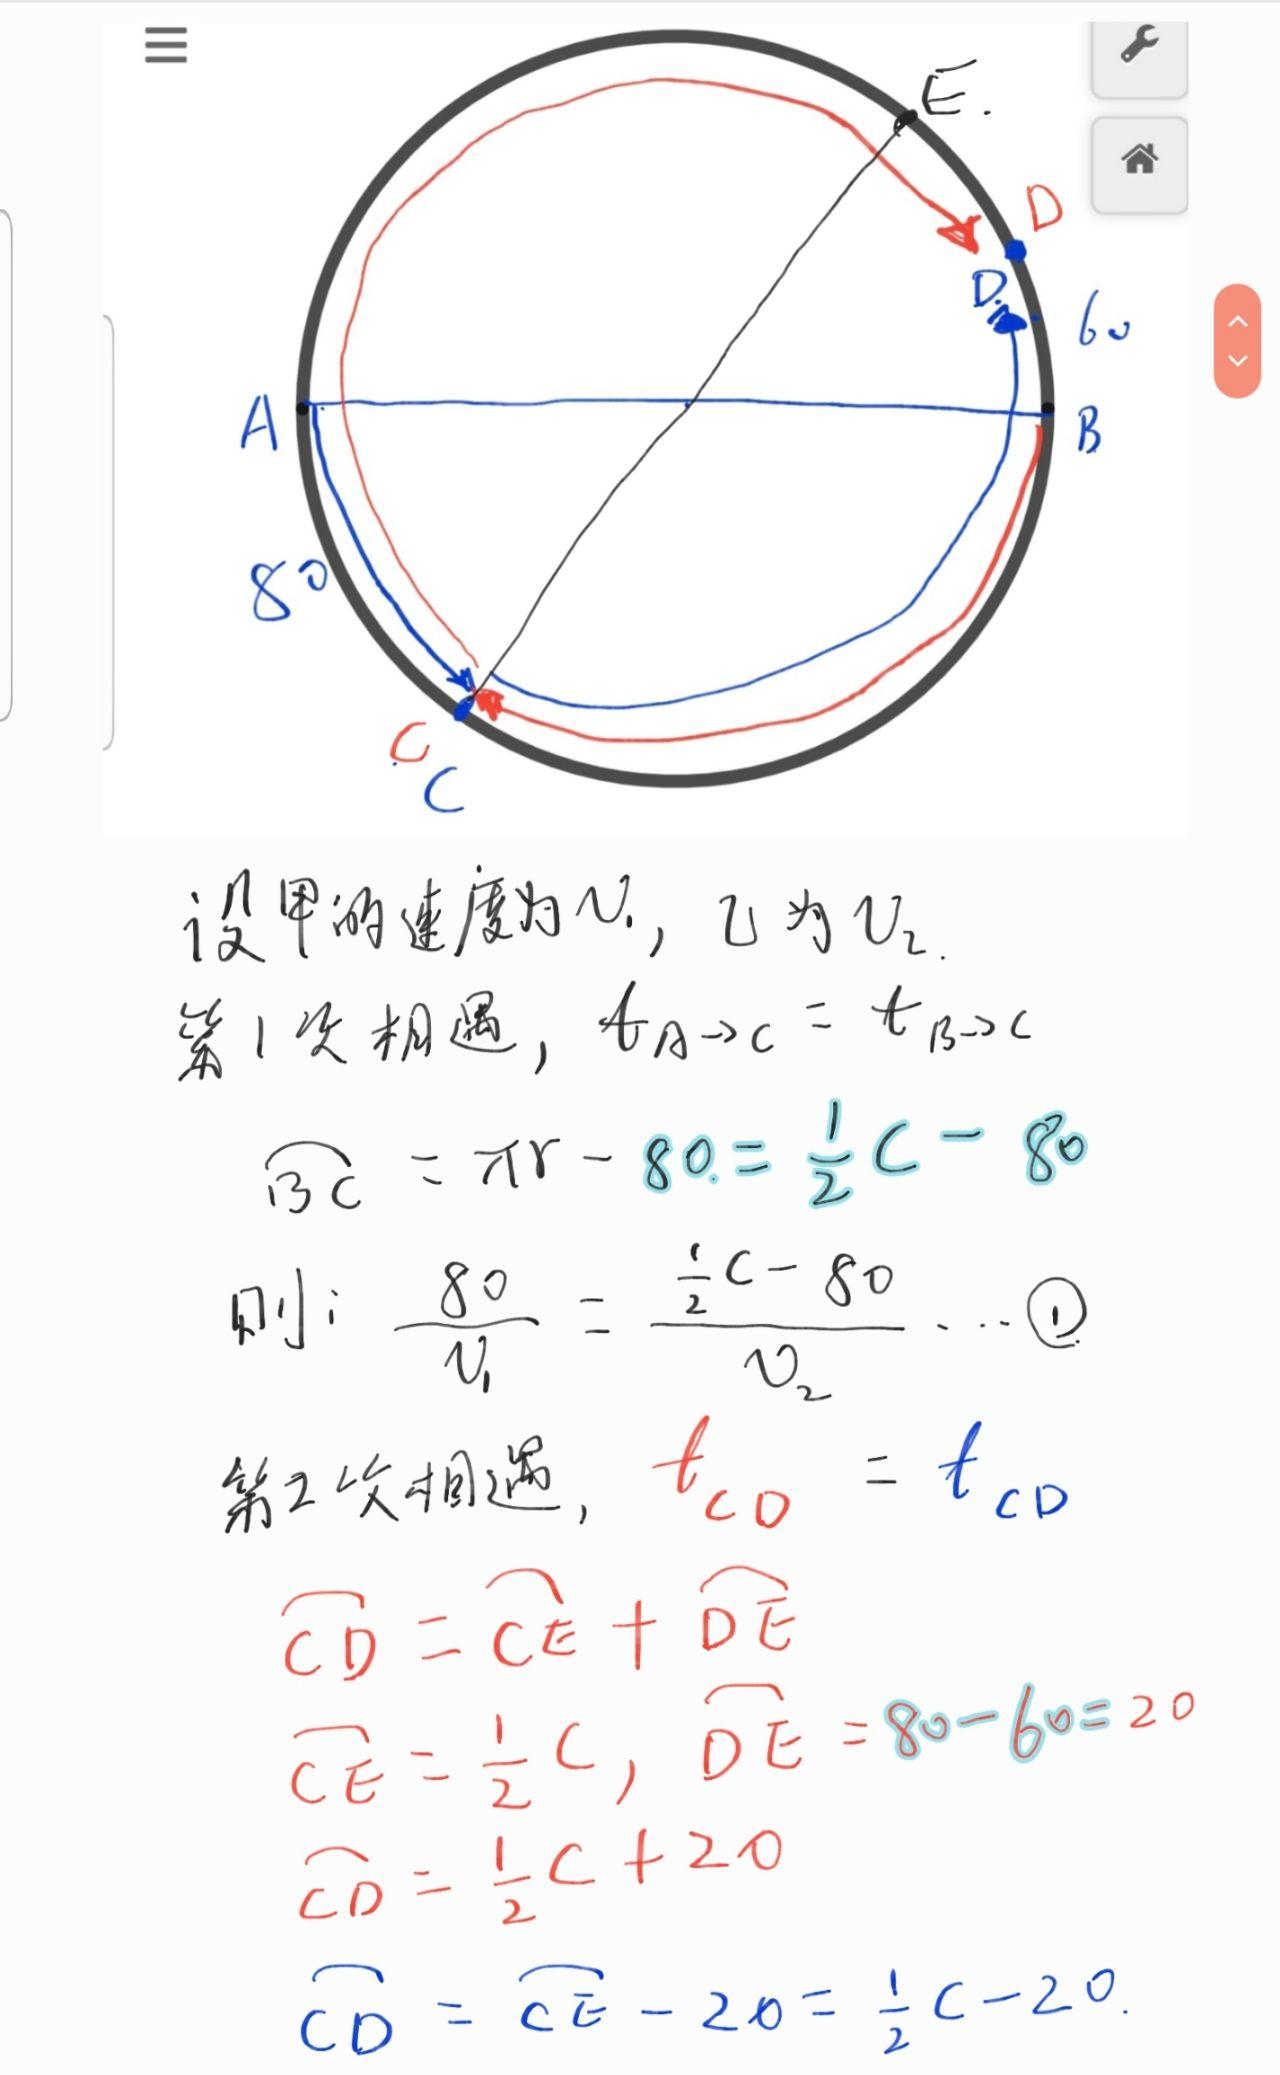 E.
D
D.
60
A
B
80
C
C
设甲的速度为V₁, 乙为V₂.
第1次相遇, t A→C = t B→C
BC = πr - 80. = 1/2 C - 80
则: 80/V₁ = (1/2 C - 80)/V₂ ... ①
第2次相遇, t CD = t CD
CD = CE + DE
CE = 1/2 C, DE = 80-60=20
CD = 1/2 C + 20
CD = CE - 20 = 1/2 C - 20.